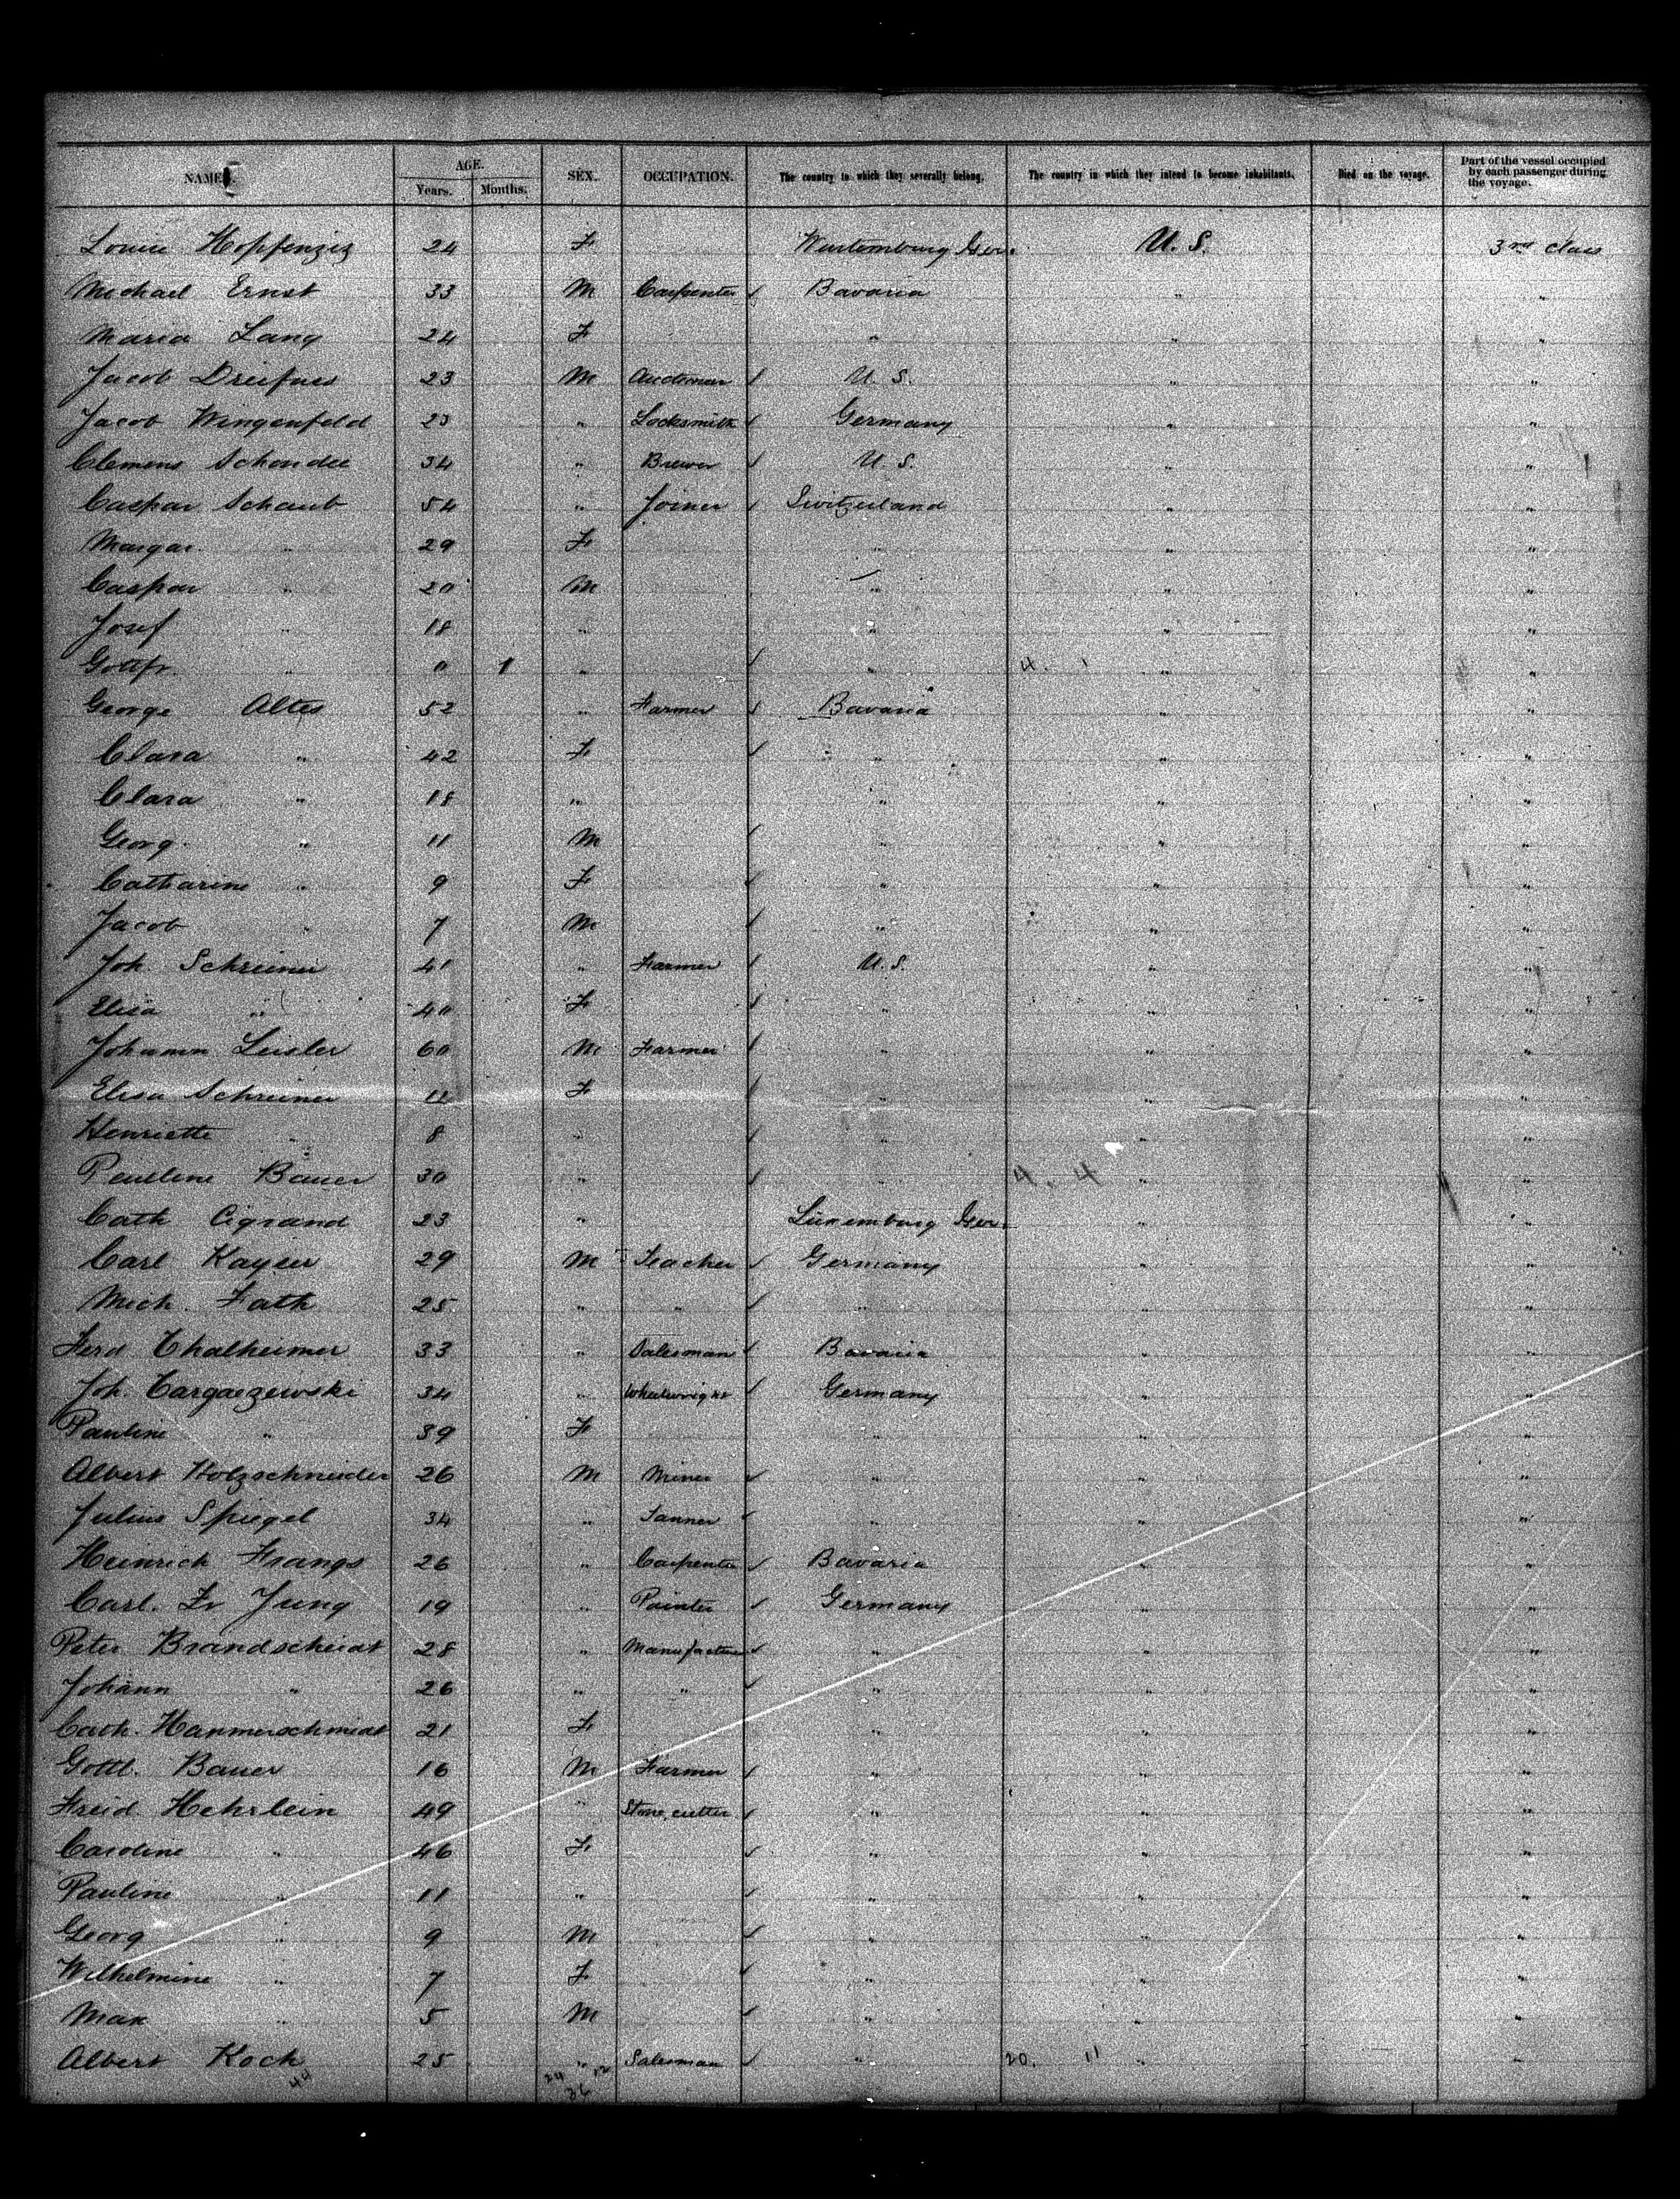 NAMES. AGE. SEX. OCCUPATION. The country to which they severally belong. The country in which they intend to become inhabitants. Died on the voyage. Part of the vessel occupied by each passenger during the voyage.
Years. Months.
Louise Hopfenziz 24 F Wurtemburg Ger. U. S. 3rd class
Michael Ernst 33 M Carpenter ✓ Bavaria " "
Maria Lang 24 F " " "
Jacob Dreifues 23 M ✓ U. S. " "
Jacob Wingenfeld 23 " Locksmith ✓ Germany " "
Clemens Schondee 34 " Brewer ✓ U. S. " "
Caspar Schaub 54 " Joiner ✓ Switzerland " "
Margar. " 29 F " " "
Caspar " 20 M " " "
Josef " 18 " " " "
Gottfr. " 0 1 " ✓ " 4. 1 " "
George Altes 52 " Farmer ✓ Bavaria " "
Clara " 42 F ✓ " " "
Clara " 18 " " " "
Georg " 11 M ✓ " " "
Catharine " 9 F ✓ " " "
Jacob " 7 M ✓ " " "
Joh. Schreiner 41 " Farmer ✓ U. S. " "
Elisa " 40 F ✓ " " "
Johann Leisler 60 M Farmer ✓ " " "
Elisa Schreiner 11 F ✓ " " "
Henriette " 8 " ✓ " " "
Pauline Bauer 30 " ✓ " 4. 4 " "
Cath Cigrand 23 " Luxemburg Ger. " "
Carl Kayser 29 M Teacher ✓ Germany " "
Mich. Fath 25 " " ✓ " " "
Ferd Thalheimer 33 " Salesman ✓ Bavaria " "
Joh. Cargaezewski 34 " Wheelwright ✓ Germany " "
Pauline " 39 F " " "
Albert Holzschneider 26 M Miner ✓ " " "
Julius Spiegel 34 " Tanner ✓ " " "
Heinrich Frangs 26 " Carpenter ✓ Bavaria " "
Carl. Fr Jung 19 " Painter ✓ Germany " "
Peter Brandscheidt 28 " Manufacturer ✓ " " "
Johann " 26 " " ✓ " " "
Cath. Hammerschmidt 21 F " " "
Gottl. Bauer 16 M Farmer ✓ " " "
Freid. Hehrlein 49 " Stone cutter ✓ " " "
Caroline " 46 F ✓ " " "
Pauline " 11 " ✓ " " "
Georg " 9 M ✓ " " "
Wilhelmine " 7 F ✓ " " "
Max " 5 M ✓ " " "
Albert Koch 25 " Salesman ✓ " 20. 11 " "
44 24 12
36